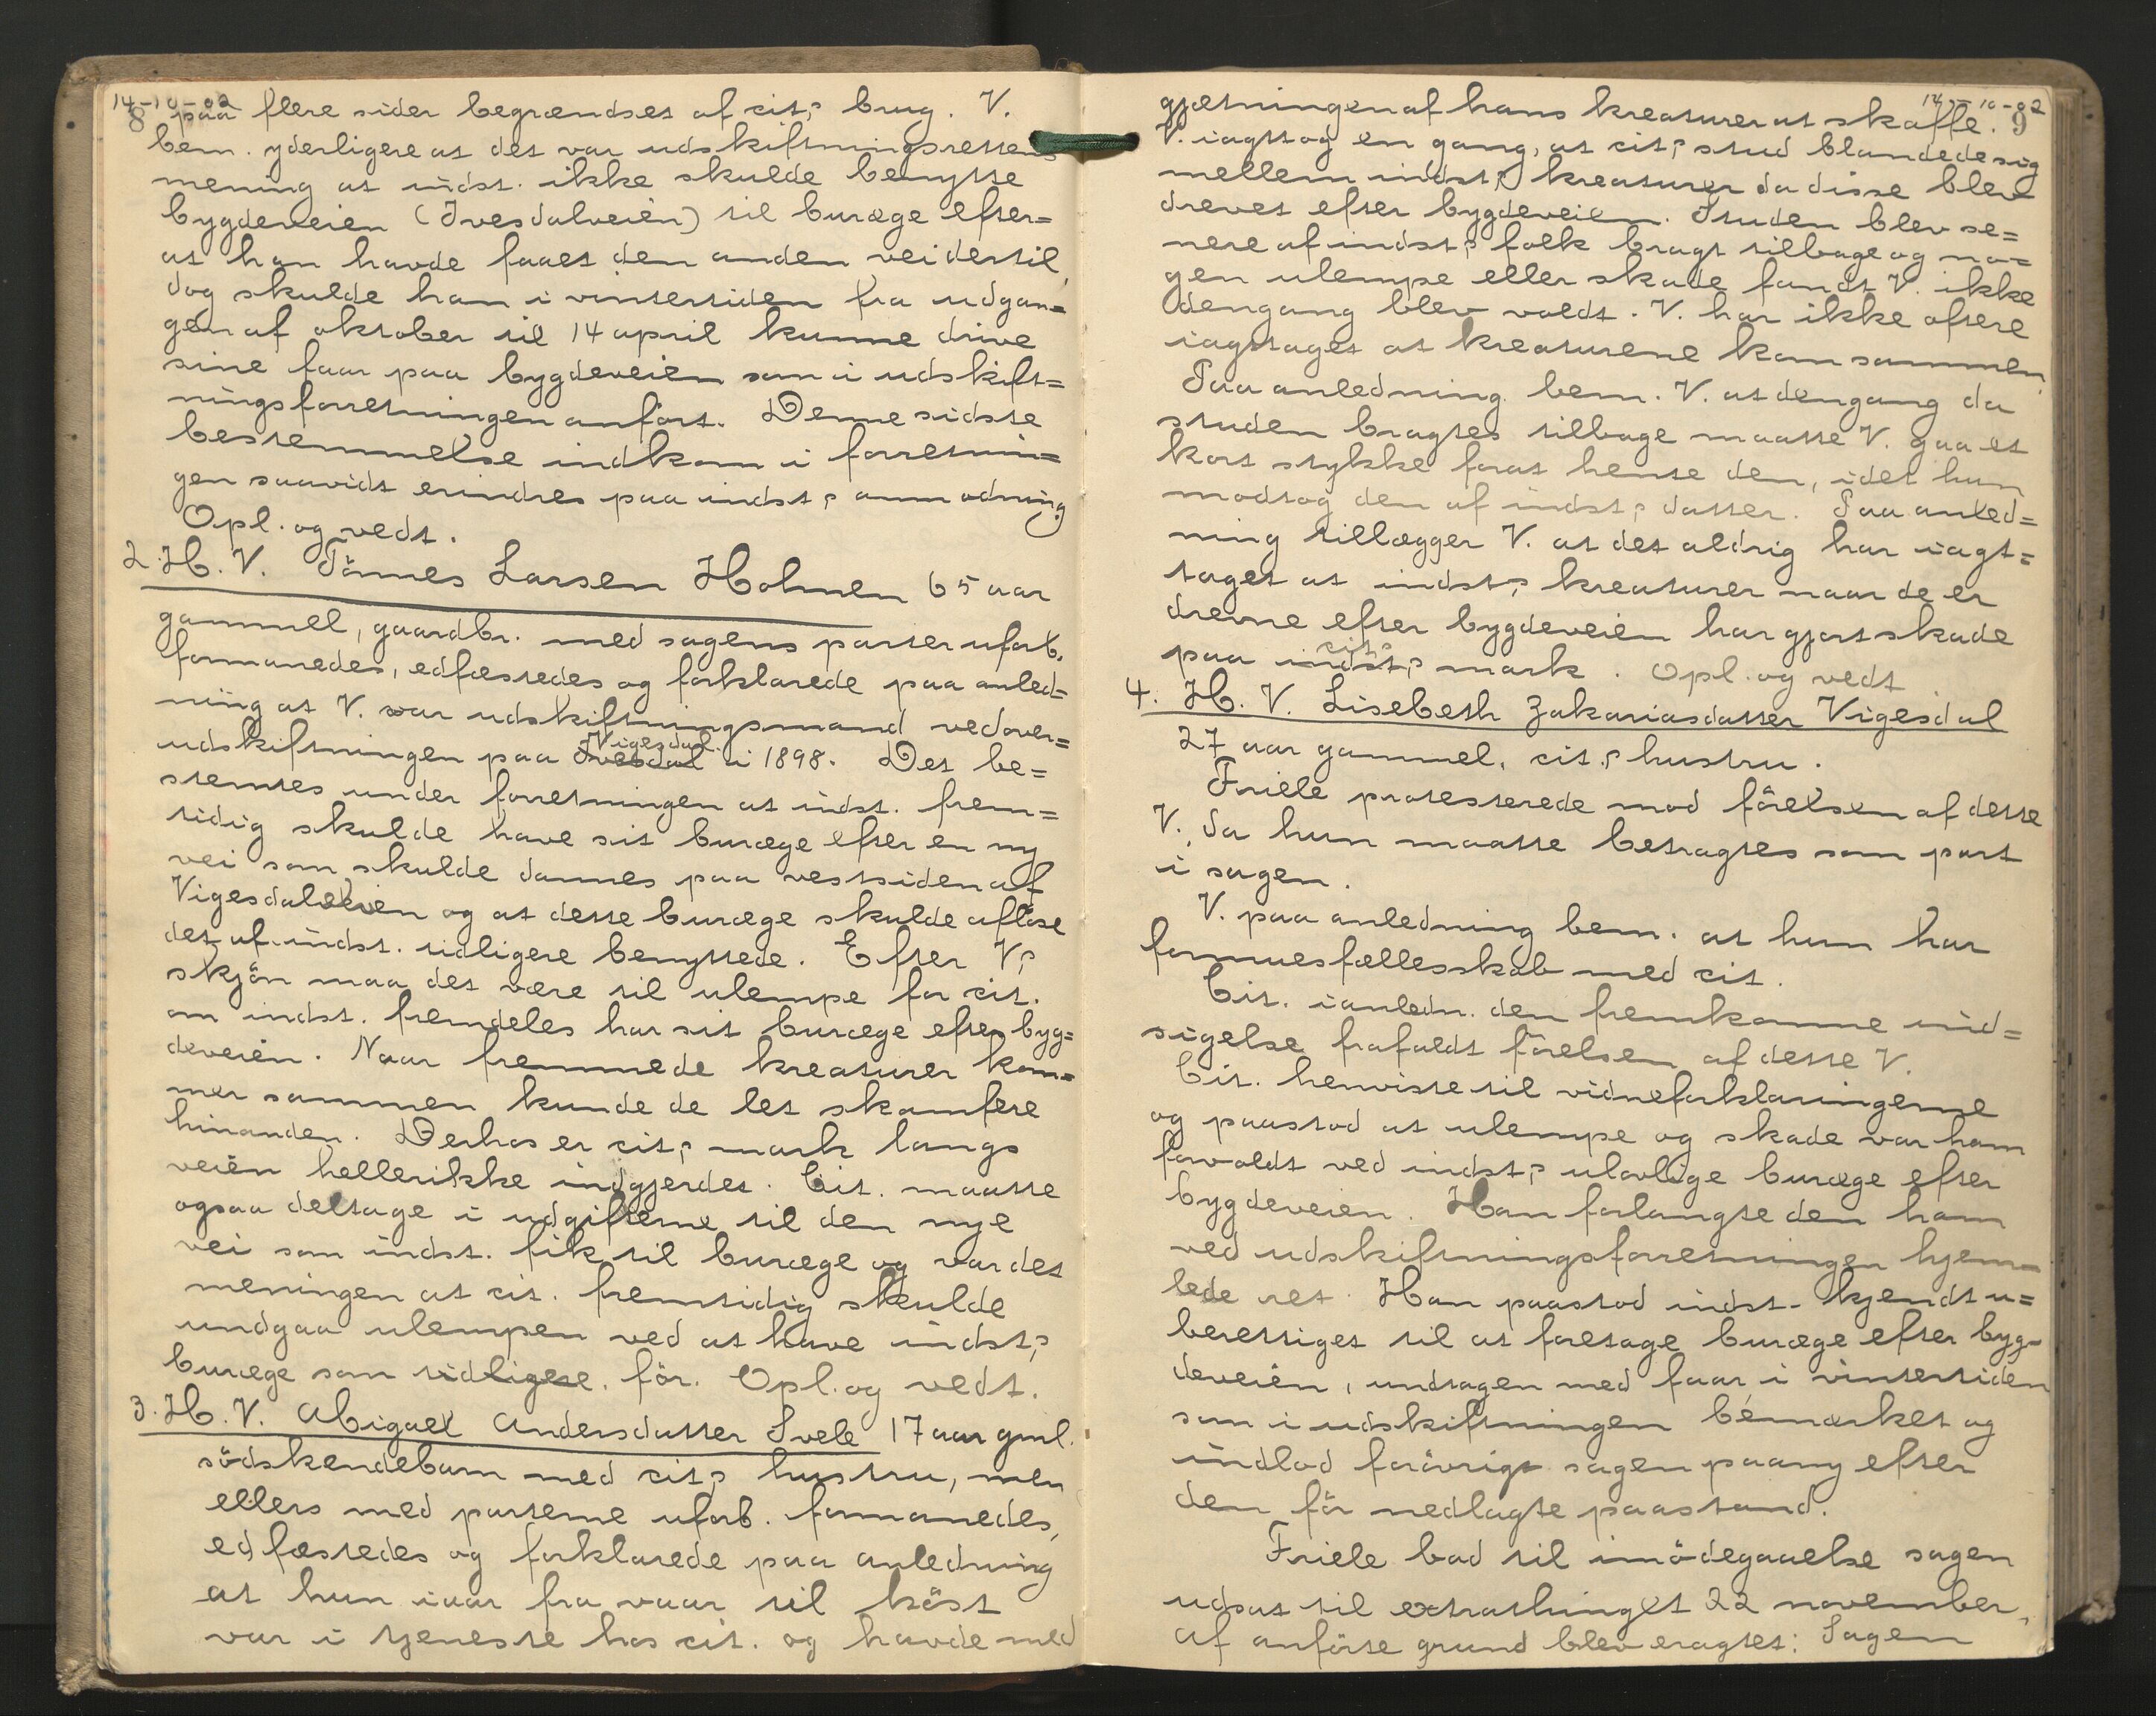 14-10-02
8 paa flere sider begrændses af cit.s brug. V.
bem. yderligere at det var udskiftningsrettens
mening at indst. ikke skulde benytte
bygdeveien (Ivesdalveien) til buræge efter=
at han havde faaet den anden vei dertil,
dog skulde han i vintertiden fra udgan=
gen af oktober til 14 april kunne drive
sine faar paa bygdeveien som i udskift=
ningsforretningen anført. Denne sidste
bestemmelse indkom i forretnin=
gen saavidt erindres paa indst.s anmodning
Opl. og vedt.
2. H. V. Tönnes Larsen Holmen 65 aar
gammel, gaardbr. med sagens parter uforb.
formanedes, edfæstedes og forklarede paa anled=
ning at V. var udskiftningsmand ved over=
Vigesdal
udskiftningen paa Ivesdal i 1898. Det be=
stemtes under forretningen at indst. frem=
tidig skulde have sit buræge efter en ny
vei som skulde dannes paa vestsiden af
Vigesdalelven og at dette buræge skulde aflöse
det af indst. tidligere benyttede. Efter V.s
skjön maa det være til ulempe for cit.
om indst. fremdeles har sit buræge efter byg=
deveien. Naar fremmede kreaturer kom=
mer sammen kunde de let skamfere
hinanden. Derhos er cit.s mark langs
veien hellerikke indgjerdet. Cit. maatte
ogsaa deltage i udgifterne til den nye
vei som indst. fik til buræge og var det
meningen at cit. fremtidig skulde
undgaa ulempen ved at have indst.s
buræge som tidligere. för. Opl. og vedt.
3. H. V. Abigael Andersdatter Svele 17 aar gml.
södskendebarn med cit.s hustru, men
ellers med parterne uforb. formanedes,
edfæstedes og forklarede paa anledning
at hun iaar fra vaar til höst
var i tjeneste hos cit. og havde med
14-10-02
gjætningen af hans kreaturer at skaffe. 9
V. iagttog en gang, at cit.s stud blandede sig
mellem indst.s kreaturer da disse blev
drevet efter bygdeveien. Studen blev se=
nere af indst.s folk bragt tilbage og no=
gen ulempe eller skade fandt V. ikke
dengang blev voldt. V. har ikke oftere
iagttaget at kreaturene kom sammen.
Paa anledning bem. V. at dengang da
studen bragtes tilbage maatte V. gaa et
kort stykke forat hente den, idet hun
modtog den af indst.s datter. Paa anled=
ning tillægger V. at det aldrig har iagt=
taget at indst.s kreaturer naar de er
drevne efter bygdeveien har gjort skade
cit.s
paa indst.s mark. Opl. og vedt
4. H. V. Lisebeth Zakariasdatter Vigesdal
27 aar gammel, cit.s hustru.
Friele protesterede mod förelsen af dette
V. da hun maatte betragtes som part
i sagen.
V. paa anledning bem. at hun har
formuesfællesskab med cit.
Cit. ianledn. den fremkomne ind=
sigelse frafaldt förelsen af dette V.
Cit. henviste til vidneforklaringerne
og paastod at ulempe og skade var ham
forvoldt ved indst.s ulovlige buræge efter
bygdeveien. Han forlangte den ham
ved udskiftningsforretningen hjem=
lede ret. Han paastod indst. kjendt u=
berettiget til at foretage buræge efter byg=
deveien, undtagen med faar i vintertiden
som i udskiftningen bemærket og
indlod forövrigt sagen paany efter
den för nedlagte paastand.
Friele bad til imödegaaelse sagen
udsat til extrathinget 22 november.
Af anförte grund blev eragtet: Sagen